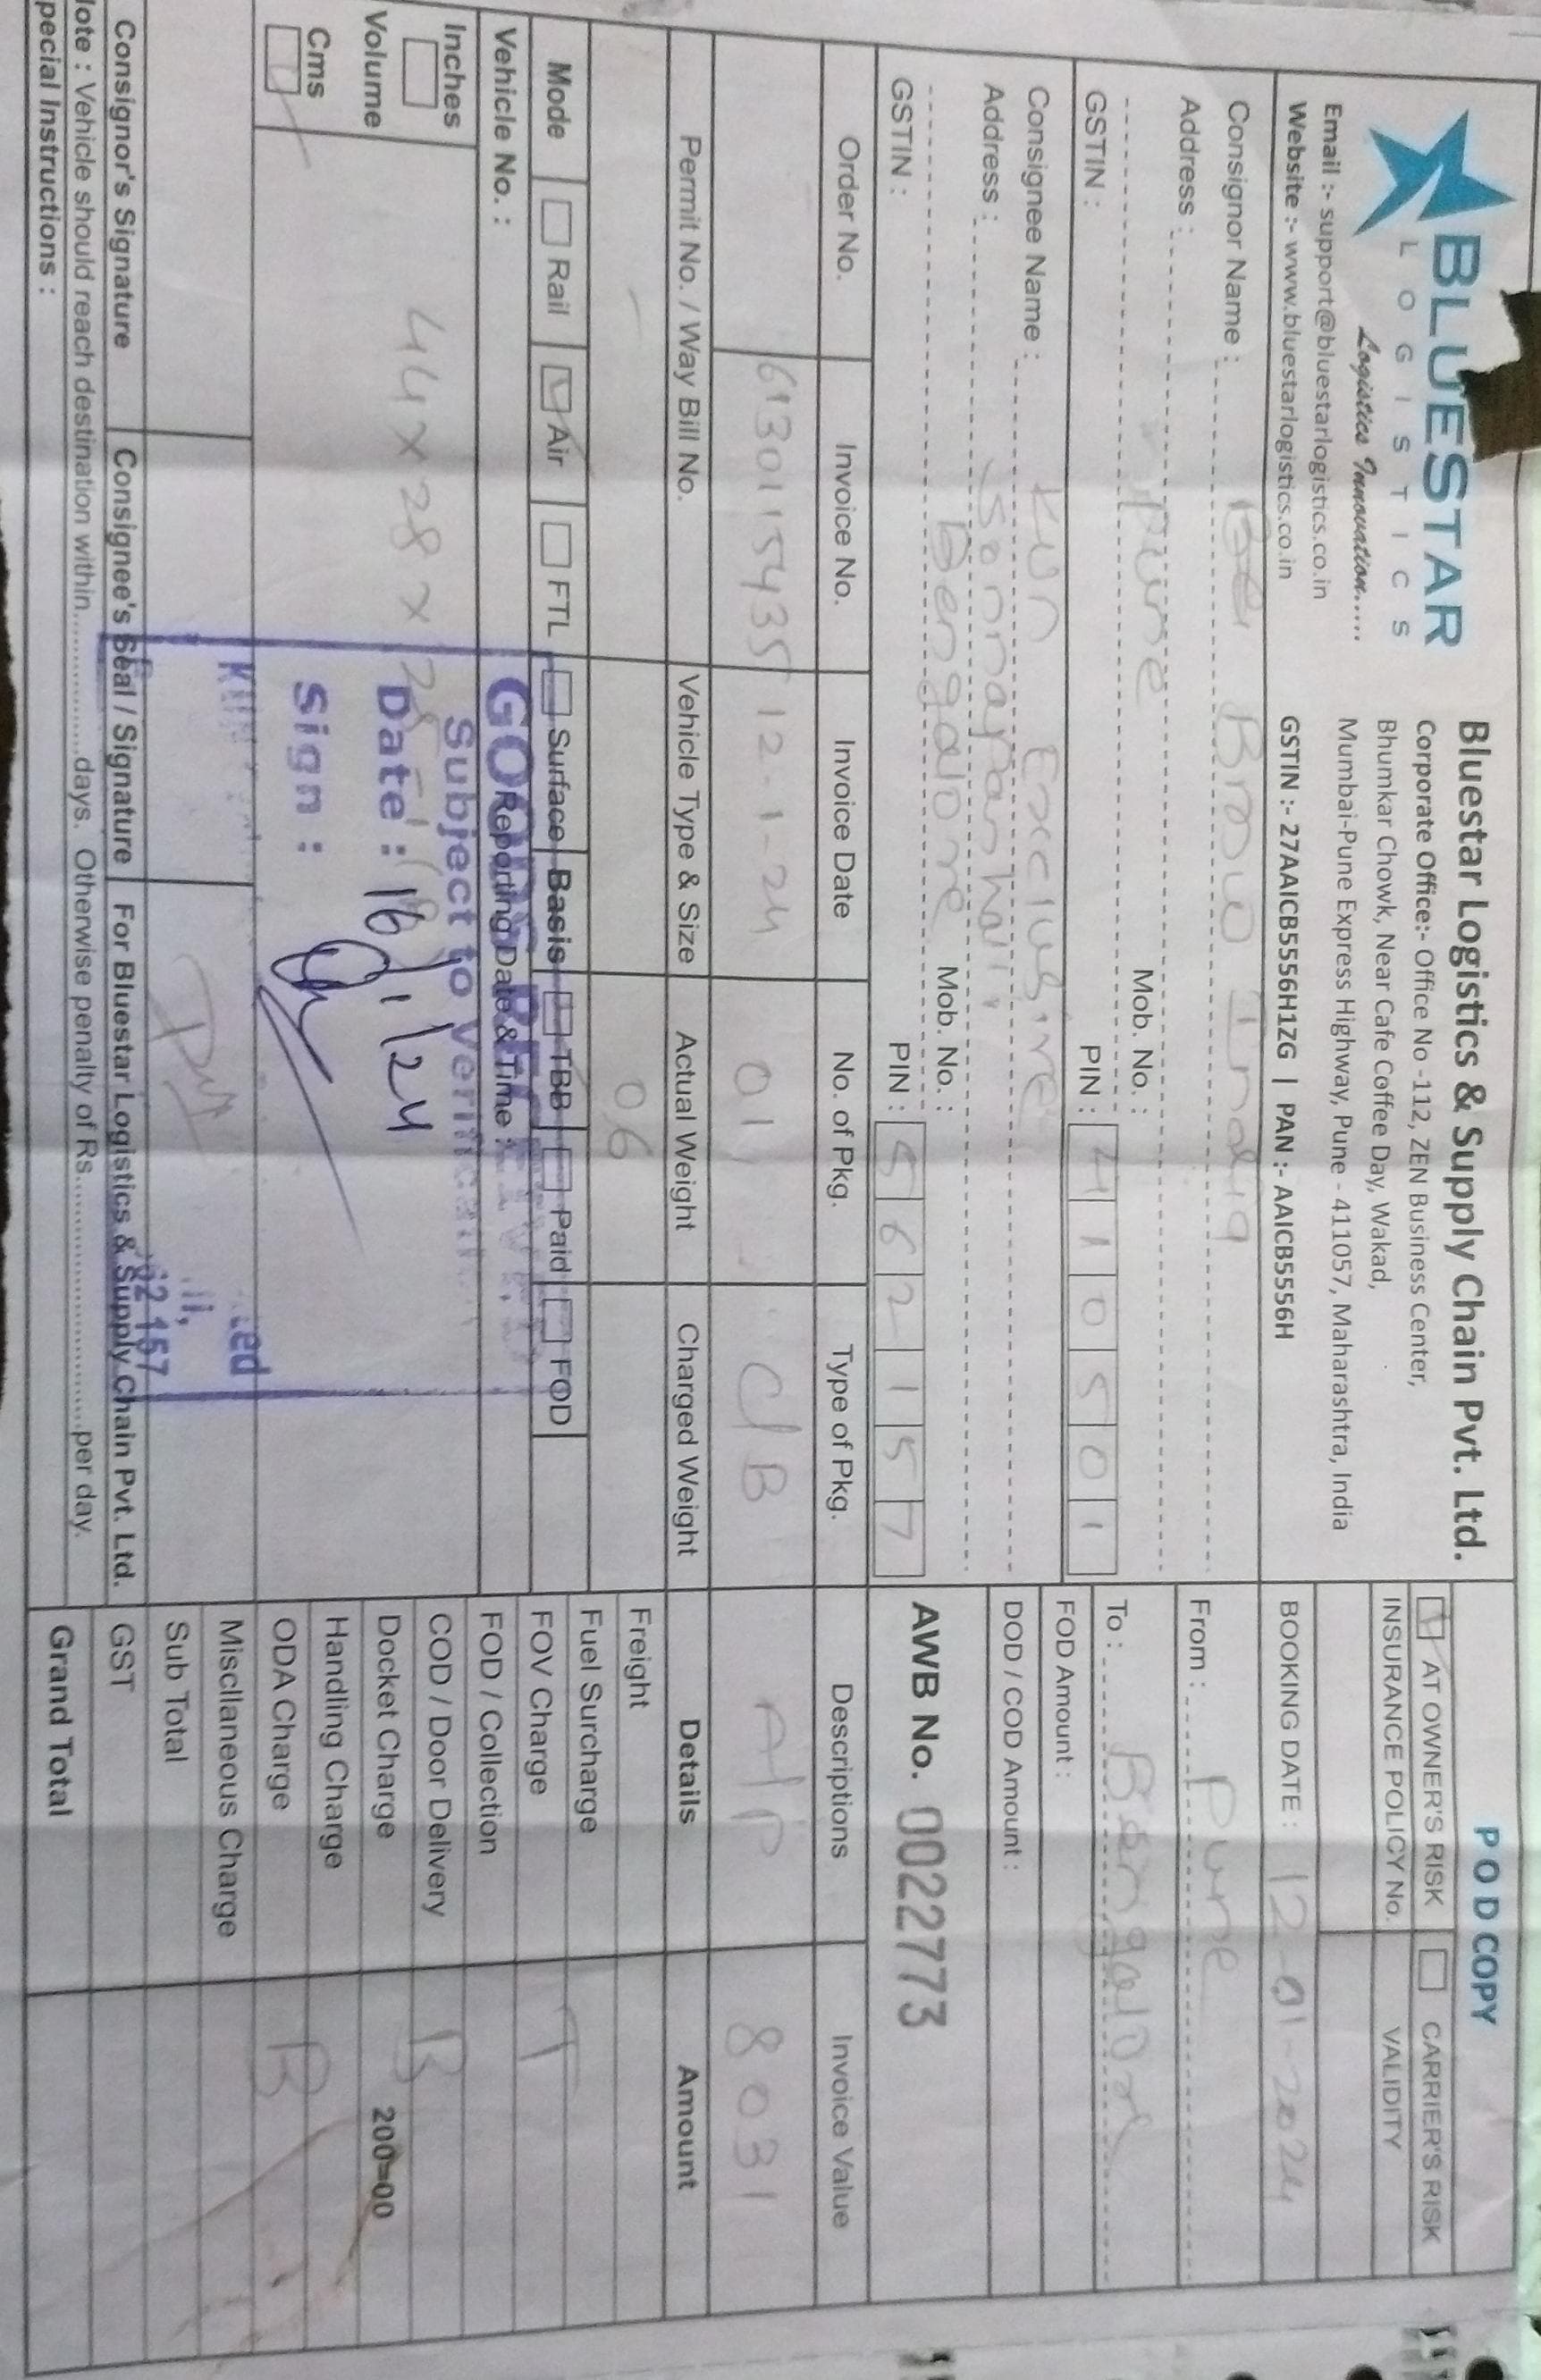 BLUESTAR
LOGISTICS
Logistics Innovation.....
Email :- support@bluestarlogistics.co.in
Website :- www.bluestarlogistics.co.in
Bluestar Logistics & Supply Chain Pvt. Ltd.
Corporate Office:- Office No -112, ZEN Business Center,
Bhumkar Chowk, Near Cafe Coffee Day, Wakad,
Mumbai-Pune Express Highway, Pune - 411057, Maharashtra, India
GSTIN :- 27AAICB5556H1ZG | PAN :- AAICB5556H
POD COPY
AT OWNER'S RISK CARRIER'S RISK
INSURANCE POLICY No. VALIDITY
BOOKING DATE : 12-01-2024
Consignor Name : India
Address :
Pune Mob. No. :
GSTIN : PIN : 410501
From : Pune
To : Bengalore
FOD Amount :
DOD / COD Amount :
AWB No. 0022773
Consignee Name : KUN Exclusive
Address :
Bengalore Mob. No. :
GSTIN : PIN : 562157
Order No. Invoice No. Invoice Date No. of Pkg. Type of Pkg. Descriptions Invoice Value
6130115435 12-1-24 01 C/B A/P 8031
Permit No. / Way Bill No. Vehicle Type & Size Actual Weight Charged Weight Details Amount
- 06
Mode Rail Air FTL Surface Basis TBB Paid FOD
Vehicle No. : Reporting Date & Time :
Inches
Volume
Cms
44 x 28 x
GOODS RECEIVED
Subject to Verification
Date : 16/1/24
Sign :
KUN
ted
li,
62 157
Freight
Fuel Surcharge
FOV Charge T
FOD / Collection
COD / Door Delivery B
Docket Charge 200=00
Handling Charge
ODA Charge B
Miscllaneous Charge
Sub Total
GST
Grand Total
Consignor's Signature Consignee's Seal / Signature For Bluestar Logistics & Supply Chain Pvt. Ltd.
lote : Vehicle should reach destination within................days. Otherwise penalty of Rs.............................per day.
pecial Instructions :